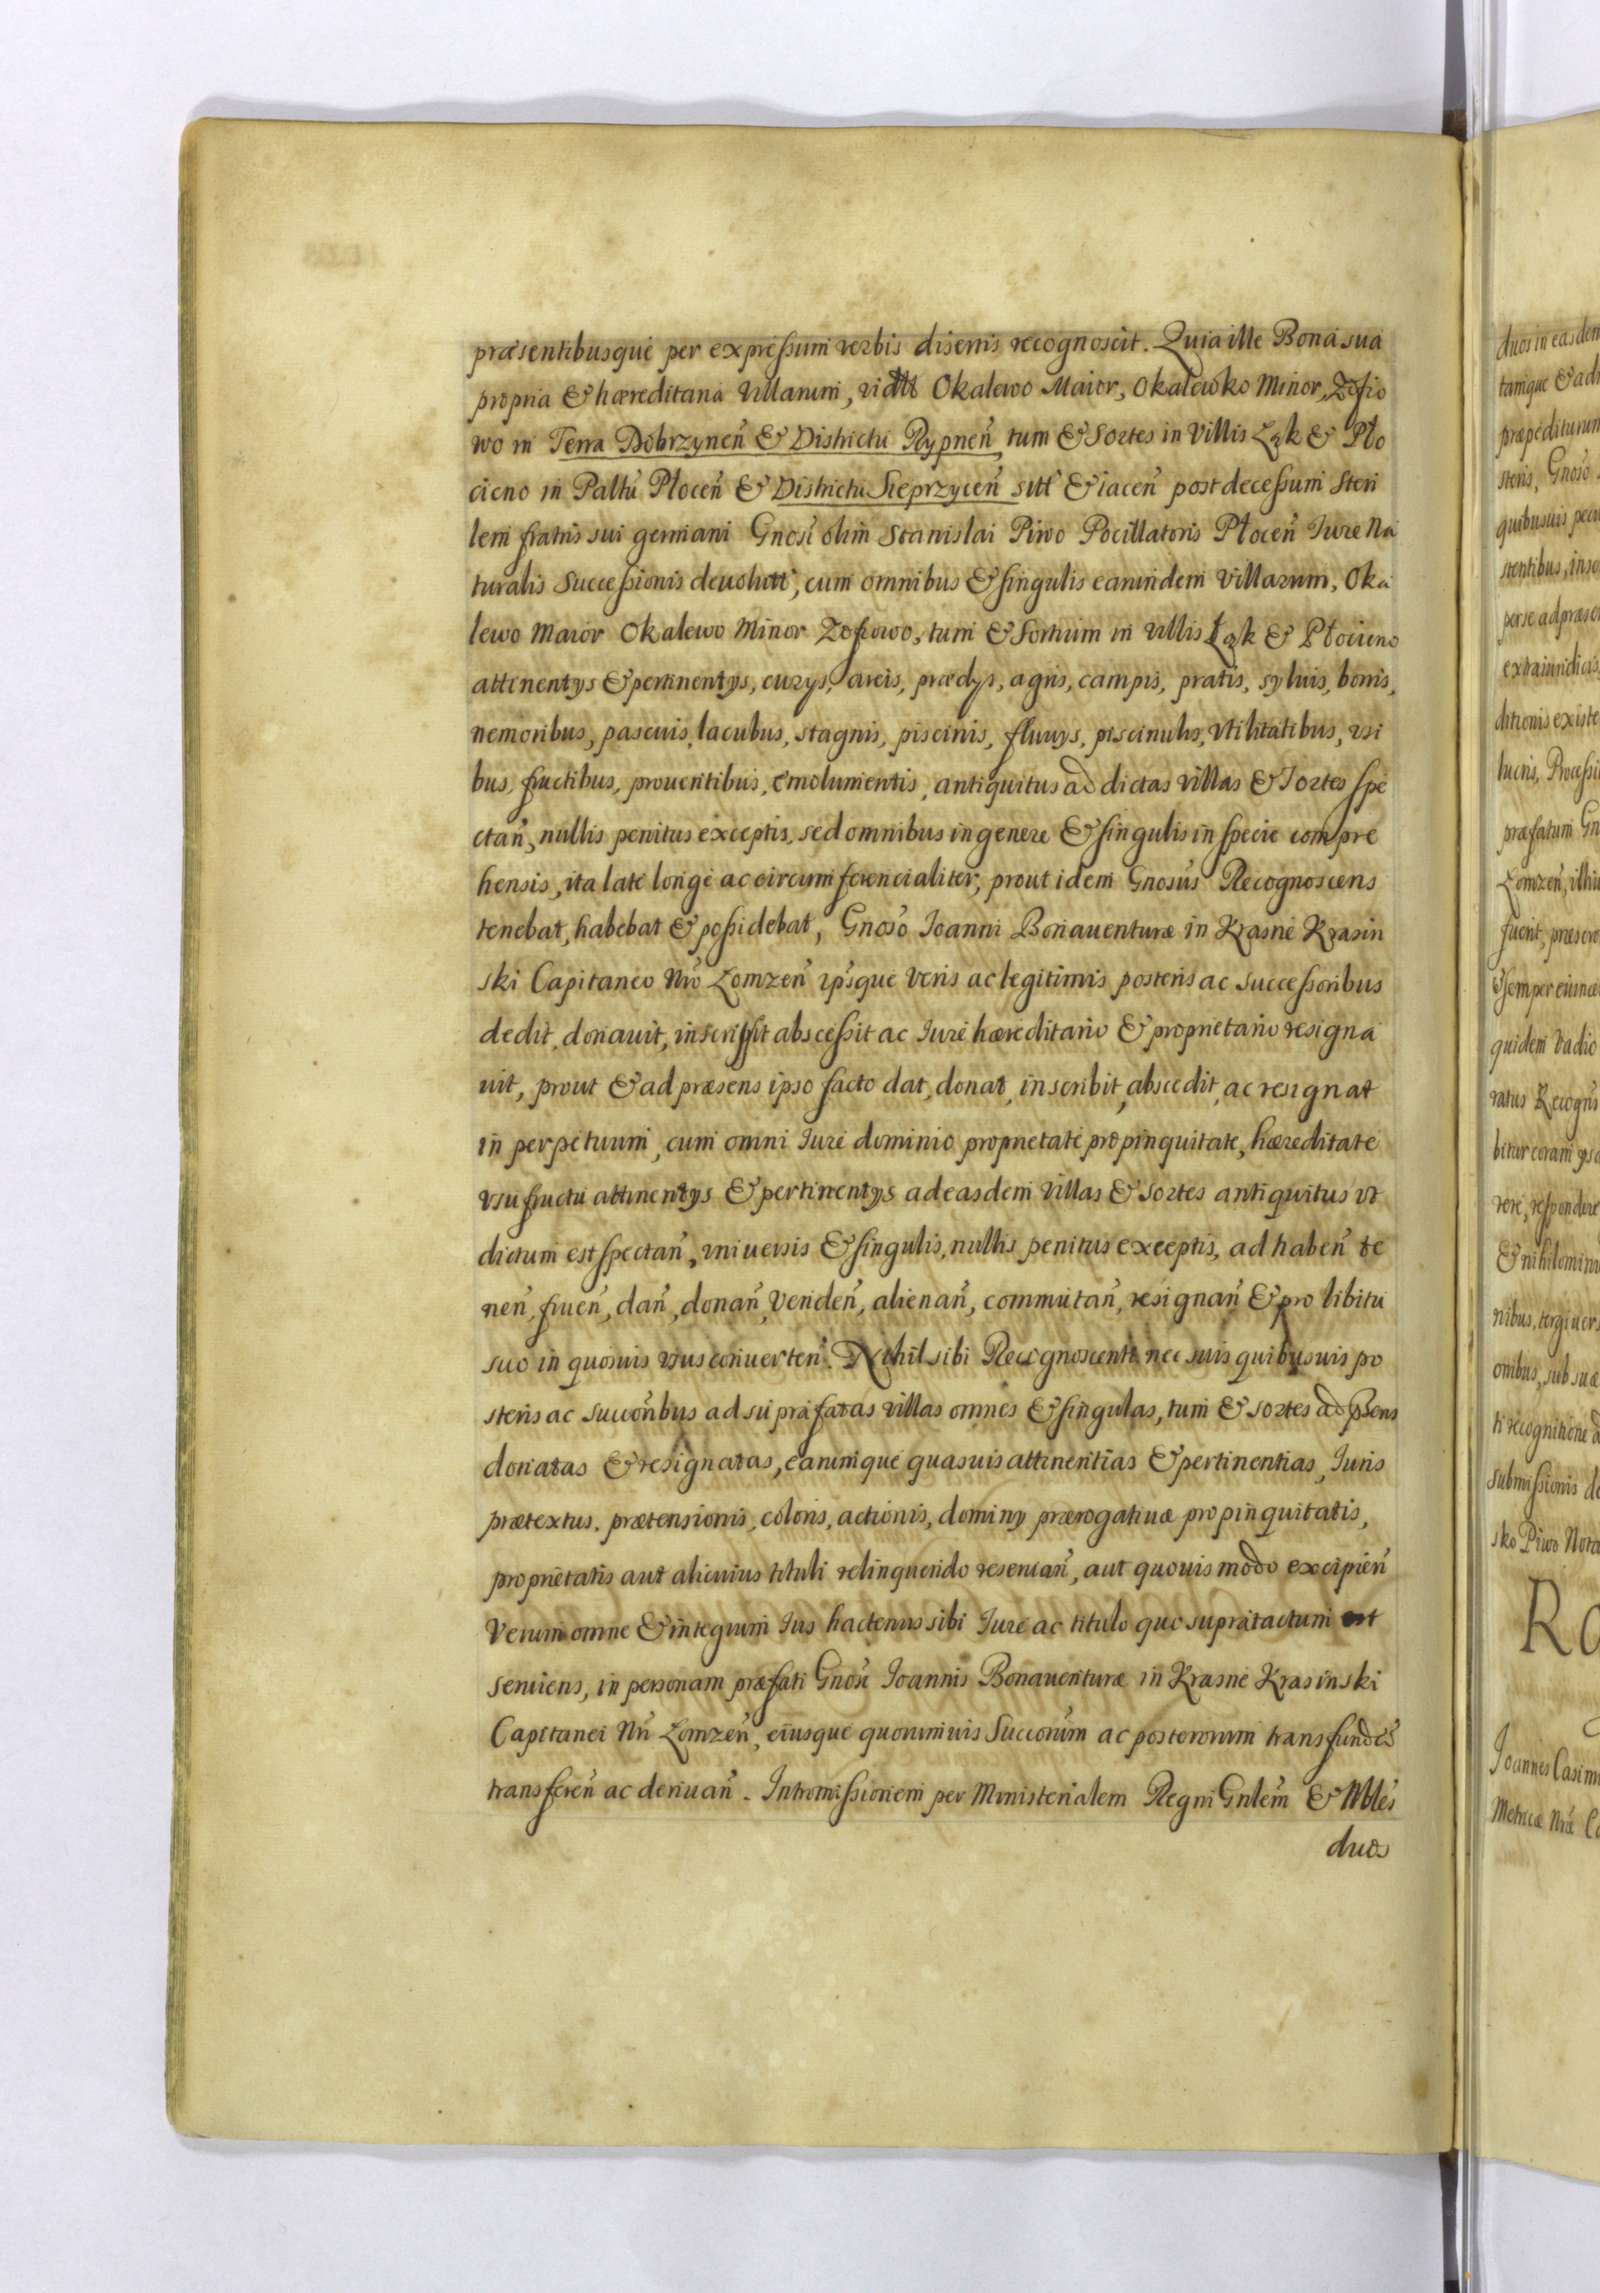 præsentibusque per expressum verbis disertis recognoscit. Quia ille Bona sua
propria & hæreditaria Villarum, vidtt Okalewo Maior, Okalewko Minor, Zofio
wo in Terra Dobrzyneñ & Districtu Rypneñ, tum & Sortes in Villis Łąk & Pło
cicno in Paltu Płoceñ & Districtu Sieprzyceñ sitt & iaceñ post decessum Steri
lem fratris sui germani Gnosi olim Stanislai Piwo Pocillatoris Płoceñ Iure Na
turalis Successionis deuolutt, cum omnibus & singulis earumdem Villarum, Oka
lewo Maior Okalewo Minor Zofiowo, tum & Sortium in Villis Łąk & Płocicno
attinentys & pertinentys, curys, areis, prædys, agris, campis, pratis, syluis, borris,
nemoribus, pascuis, lacubus, stagnis, piscinis, fluuys, piscinulis, Vtilitatibus, vsi
bus, fructibus, prouentibus, emolumentis, antiquitus ad dictas villas & Sortes spe
ctañ, nullis penitus exceptis, sed omnibus in genere & singulis in specie compre
hensis, ita late longe ac circumferencialiter, prout idem Gnosus Recognoscens
tenebat, habebat & possidebat, Gnoso Ioanni Bonauenturæ in Krasne Krasin
ski Capitaneo Nro Lomzeñ ipsque Veris ac legitimis posteris ac successoribus
dedit, donauit, inscripsit abscessit ac Iure hæreditario & proprietario resigna
uit, prout & ad præsens ipso facto dat, donat, inscribit, abscedit, ac resignat
in perpetuum, cum omni Iure dominio proprietate propinquitate, hæreditate
vsufructu attinentys & pertinentys ad easdem Villas & Sortes antiquitus vt
dictum est spectañ, vniuersis & singulis, nullis penitus exceptis, ad habeñ te
neñ, frueñ, dañ, donañ, Vendeñ, alienañ, commutañ, resignañ & pro libitu
suo in quosuis vsus conuerteñ. Nihil sibi Recognoscenti nec suis quibusuis po
steris ac succoribus ad suprafatas villas omnes & singulas, tum & sortes ad psens
donatas & resignatas, earumque quasuis attinentias & pertinentias, Iuris
prætextus, prætensionis, coloris, actionis, dominy prærogatiuæ propinquitatis,
proprietatis aut alicuius tituli relinquendo reseruañ, aut quouis modo excipieñ
Verum omne & integrum Ius hactenus sibi Iure ac titulo quo supratactum est
seruiens, in personam præfati Gnosi Ioannis Bonauenturæ in Krasne Krasinski
Capitanei Nri Lomzeñ, eiusque quorumuis Succorum ac posterorum transfundeñ
transfereñ ac deriuañ. Intromissionem per Ministerialem Regni Gnlem & Nbles
duos
duos in easdem
tamque & ad
præpediturum
steris, Gnoso
quibusuis
stentibus,
per se ad
extraiudiciis
ditionis
lucris, Processi
præfatum Gn
Lomzeñ, illiu
fuerit,
& semper
quidem Vadio
ratus Recogns
bitur coram
rere, respondere
& nihilominus
nibus, tergiuer
onibus, sub suæ
ti recognitione
submissionis
sko Piwo Nota
Ro
Joannes Casimi
Metricæ Nræ